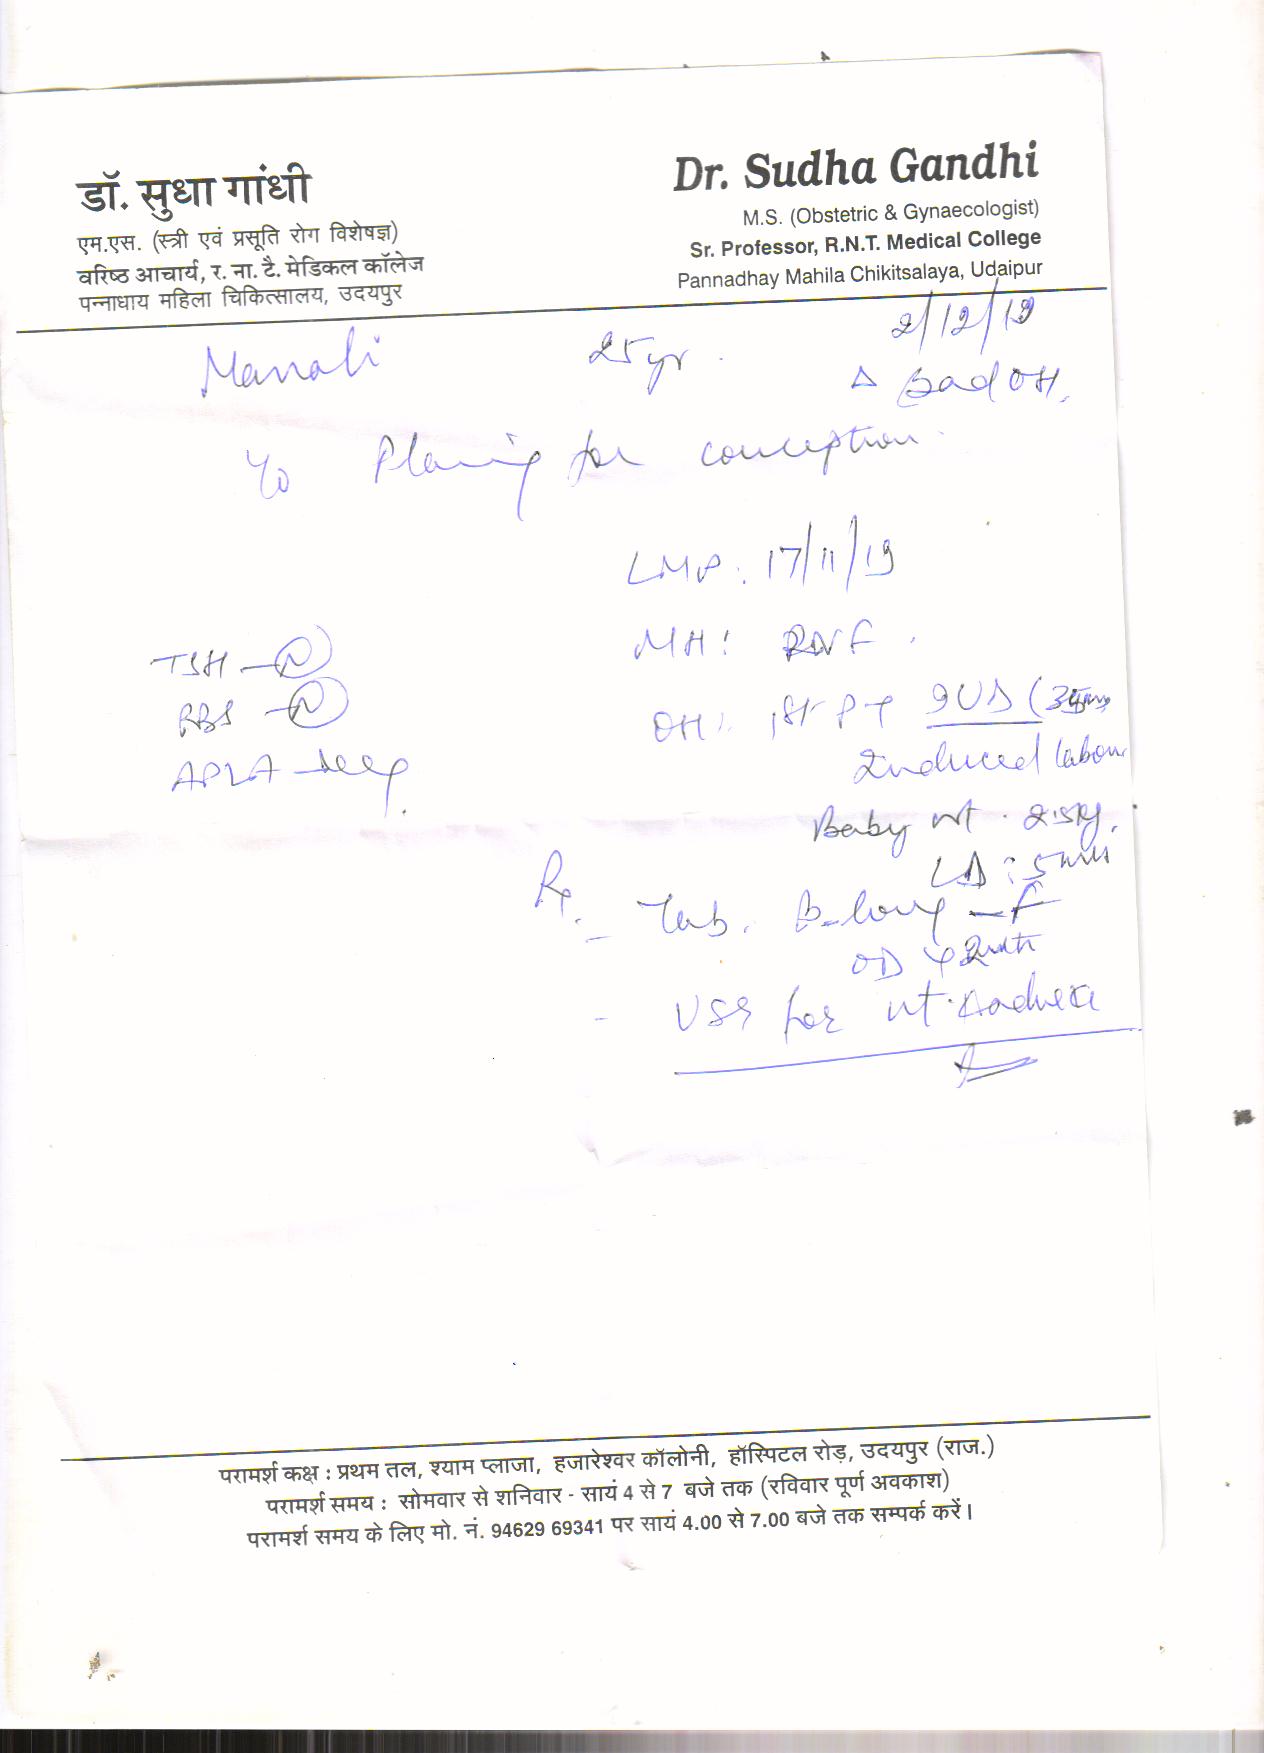 डॉ. सुधा गांधी
एम.एस. (स्त्री एवं प्रसूति रोग विशेषज्ञ)
वरिष्ठ आचार्य, र. ना. टै. मेडिकल कॉलेज
पन्नाधाय महिला चिकित्सालय, उदयपुर
Dr. Sudha Gandhi
M.S. (Obstetric & Gynaecologist)
Sr. Professor, R.N.T. Medical College
Pannadhay Mahila Chikitsalaya, Udaipur
2/12/19
Manali 25 yr.
Δ Bad OH.
for conception.
LMP: 17/11/19
MH:
TSH - N
RBS - N
APLA -
OH: 1st
Induced labour
Baby wt. 2.5kg.
Rx.
- Tab. B-long-F
OD
- USG for
परामर्श कक्ष : प्रथम तल, श्याम प्लाजा, हजारेश्वर कॉलोनी, हॉस्पिटल रोड़, उदयपुर (राज.)
परामर्श समय : सोमवार से शनिवार - सायं 4 से 7 बजे तक (रविवार पूर्ण अवकाश)
परामर्श समय के लिए मो. नं. 94629 69341 पर सायं 4.00 से 7.00 बजे तक सम्पर्क करें।